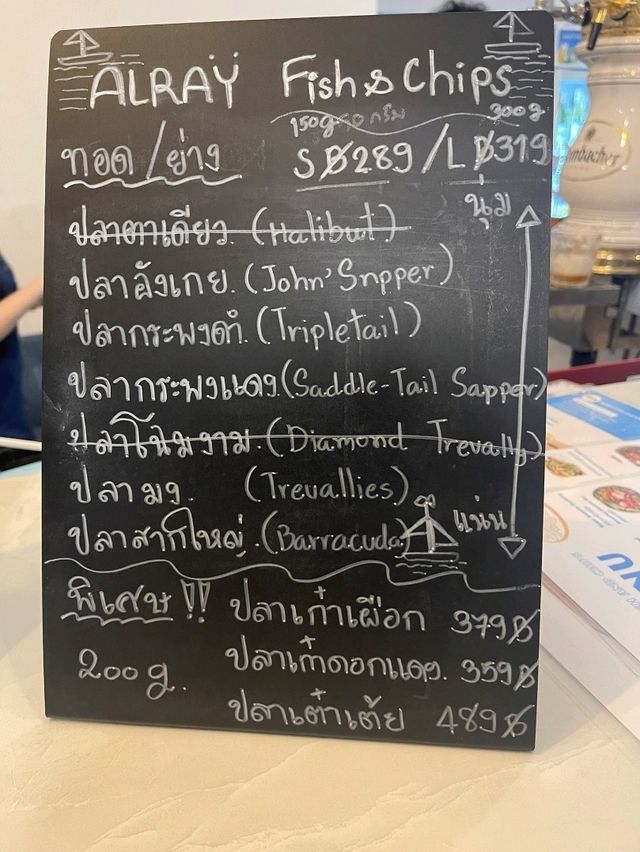 ALRAY Fish & Chips
150g. 300g
ทอด/ย่าง S ฿289/L ฿319
นุ่ม
ปลาตาเดียว. (Halibut)
ปลาอังเกย. (John'Snpper)
ปลากระพงดำ. (Tripletail)
ปลากระพงแดง. (Saddle-Tail Sapper)
ปลาโฉมงาม. (Diamond Trevally)
ปลามง. (Trevallies)
ปลาสากใหญ่. (Barracuda)
แน่น
พิเศษ!! ปลาเก๋าเผือก 379฿
200g. ปลาเก๋าดอกแดง. 359฿
ปลาเต๋าเต้ย 489฿
mbacher
NU